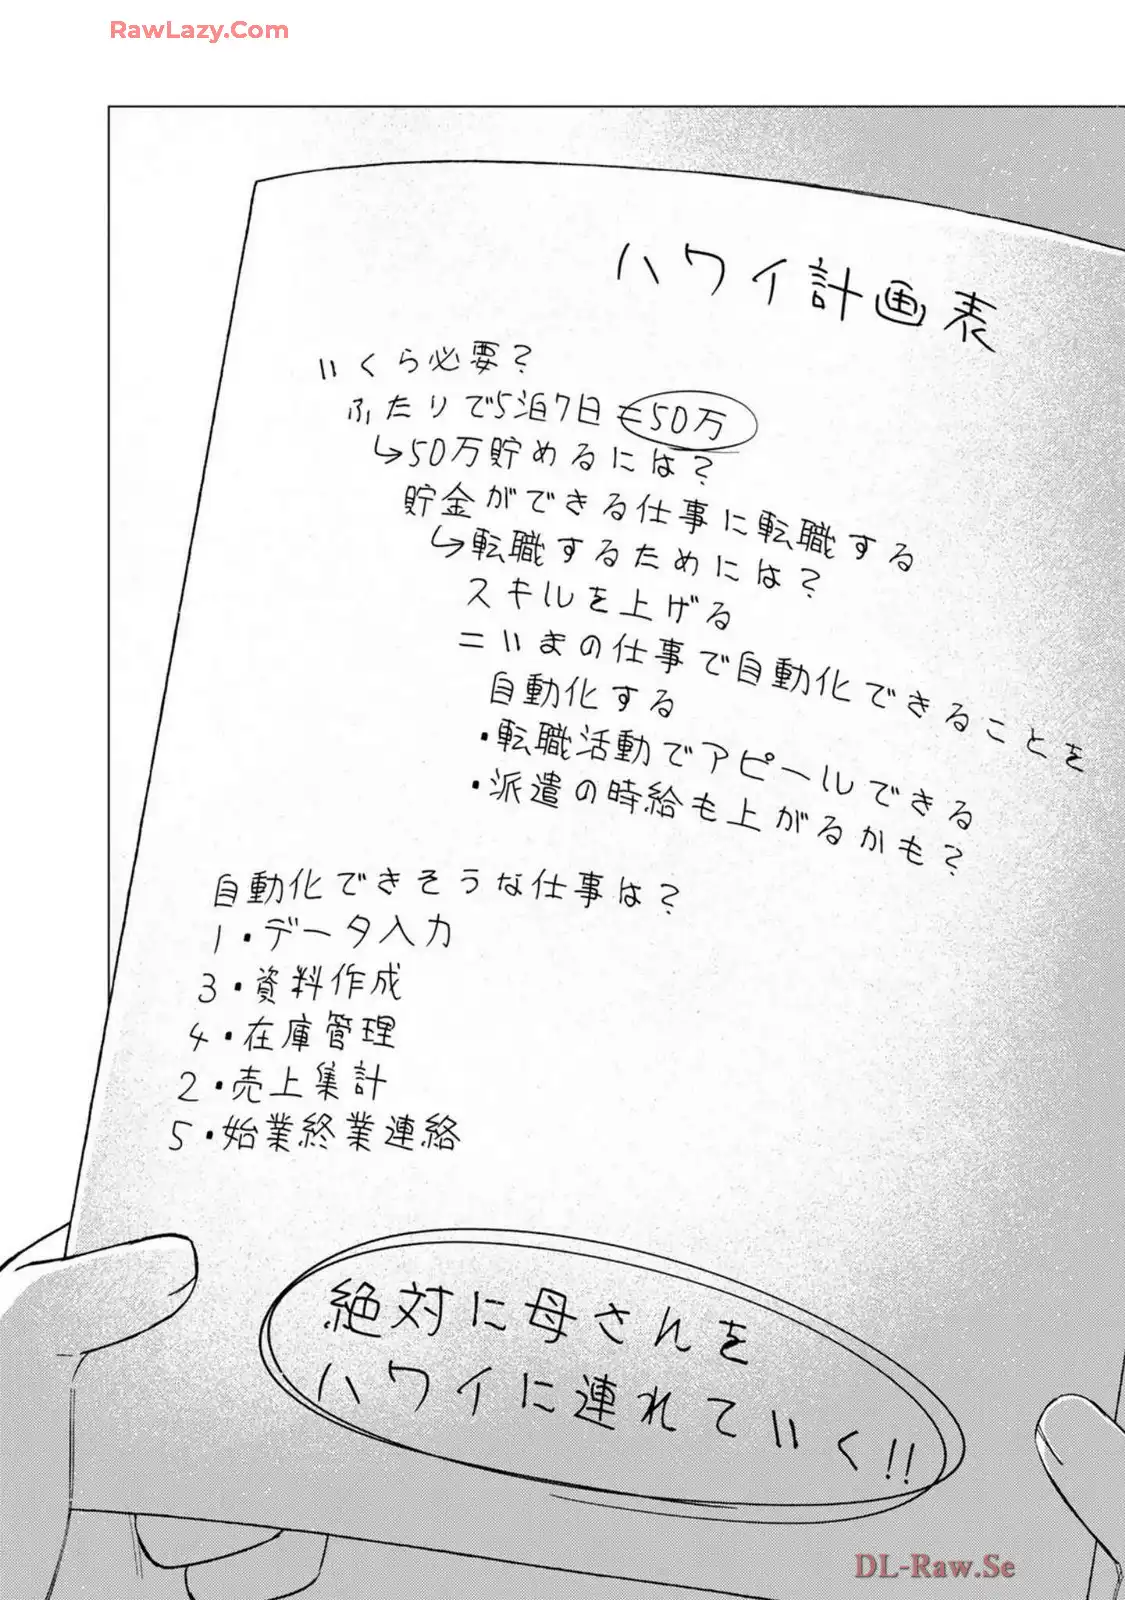 RawLazy.Com
ハワイ計画表
いくら必要?
ふたりで5泊7日=50万
↳50万貯めるには?
貯金ができる仕事に転職する
↳転職するためには?
スキルを上げる
=いまの仕事で自動化できることを
自動化する
・転職活動でアピールできる
・派遣の時給も上がるかも?
自動化できそうな仕事は?
1・データ入力
3・資料作成
4・在庫管理
2・売上集計
5・始業終業連絡
絶対に母さんを
ハワイに連れていく!!
DL-Raw.Se